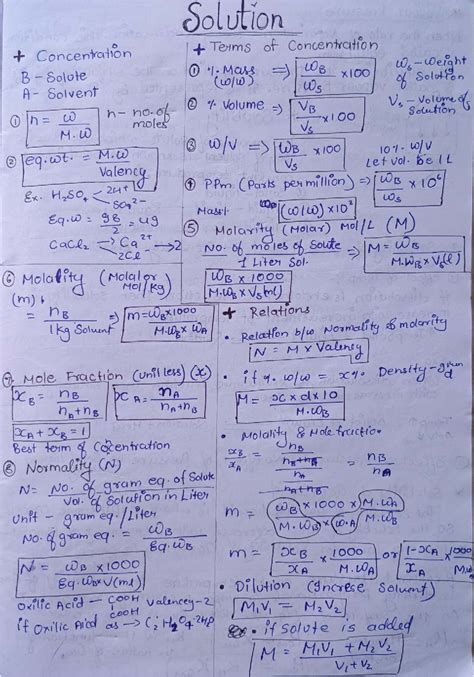 Solution
+ Concentration
B - Solute
A - Solvent
① n = w / M.w
n - no. of moles
② eq.wt. = M.w / Valency
Ex. H2SO4 2H+
SO4 2-
Eq.w = 98/2 = 49
CaCl2 → Ca2+ → 2
2Cl-
⑥ Molality (Molal or Mol/kg)
(m) = nB / 1kg Solvent => m = wB x 1000 / M.wB x wA
⑦ Mole Fraction (Unitless) (x)
xB = nB / nA + nB
xA = nA / nA + nB
xA + xB = 1
Best term of Concentration
⑧ Normality (N)
N = No. of gram eq. of Solute / Vol. of Solution in Liter
Unit - gram eq./Liter
No. of gram eq. = wB / Eq.wB
N = wB x 1000 / Eq.wB x V(ml)
Oxilic Acid - COOH Valencey - 2
COOH
if Oxilic Acid as → C2H2O4.2H2O
+ Terms of Concentration
① % Mass (w/w) => wB / ws x 100
ws - Weight of Solution
② % Volume => VB / Vs x 100
Vs - Volume of Solution
③ W/V => wB / Vs x 100
10% W/V
Let vol. be 1L
④ PPm (Parts per million) => wB / ws x 10^6
⑤ Molarity (Molar) Mol/L (M)
No. of moles of Solute / 1 Liter Sol. => M = wB / M.wB x Vs(l)
wB x 1000 / M.wB x Vs(ml)
+ Relations
• Relation b/w Normality & molarity
N = M x Valency
• if % w/w = x% Density - d given
M = x x d x 10 / M.wB
• Molality & Mole fraction
xB / xA = nB / nA + nB / nA / nA + nB = nB / nA
m = wB x 1000 x M.wA / M.wB x wA x M.wA
m = xB / xA x 1000 / M.wA or 1-xA / xA x 1000
• Dilution (Increse Solvent)
M1V1 = M2V2
• if Solute is added
M = M1V1 + M2V2 / V1 + V2